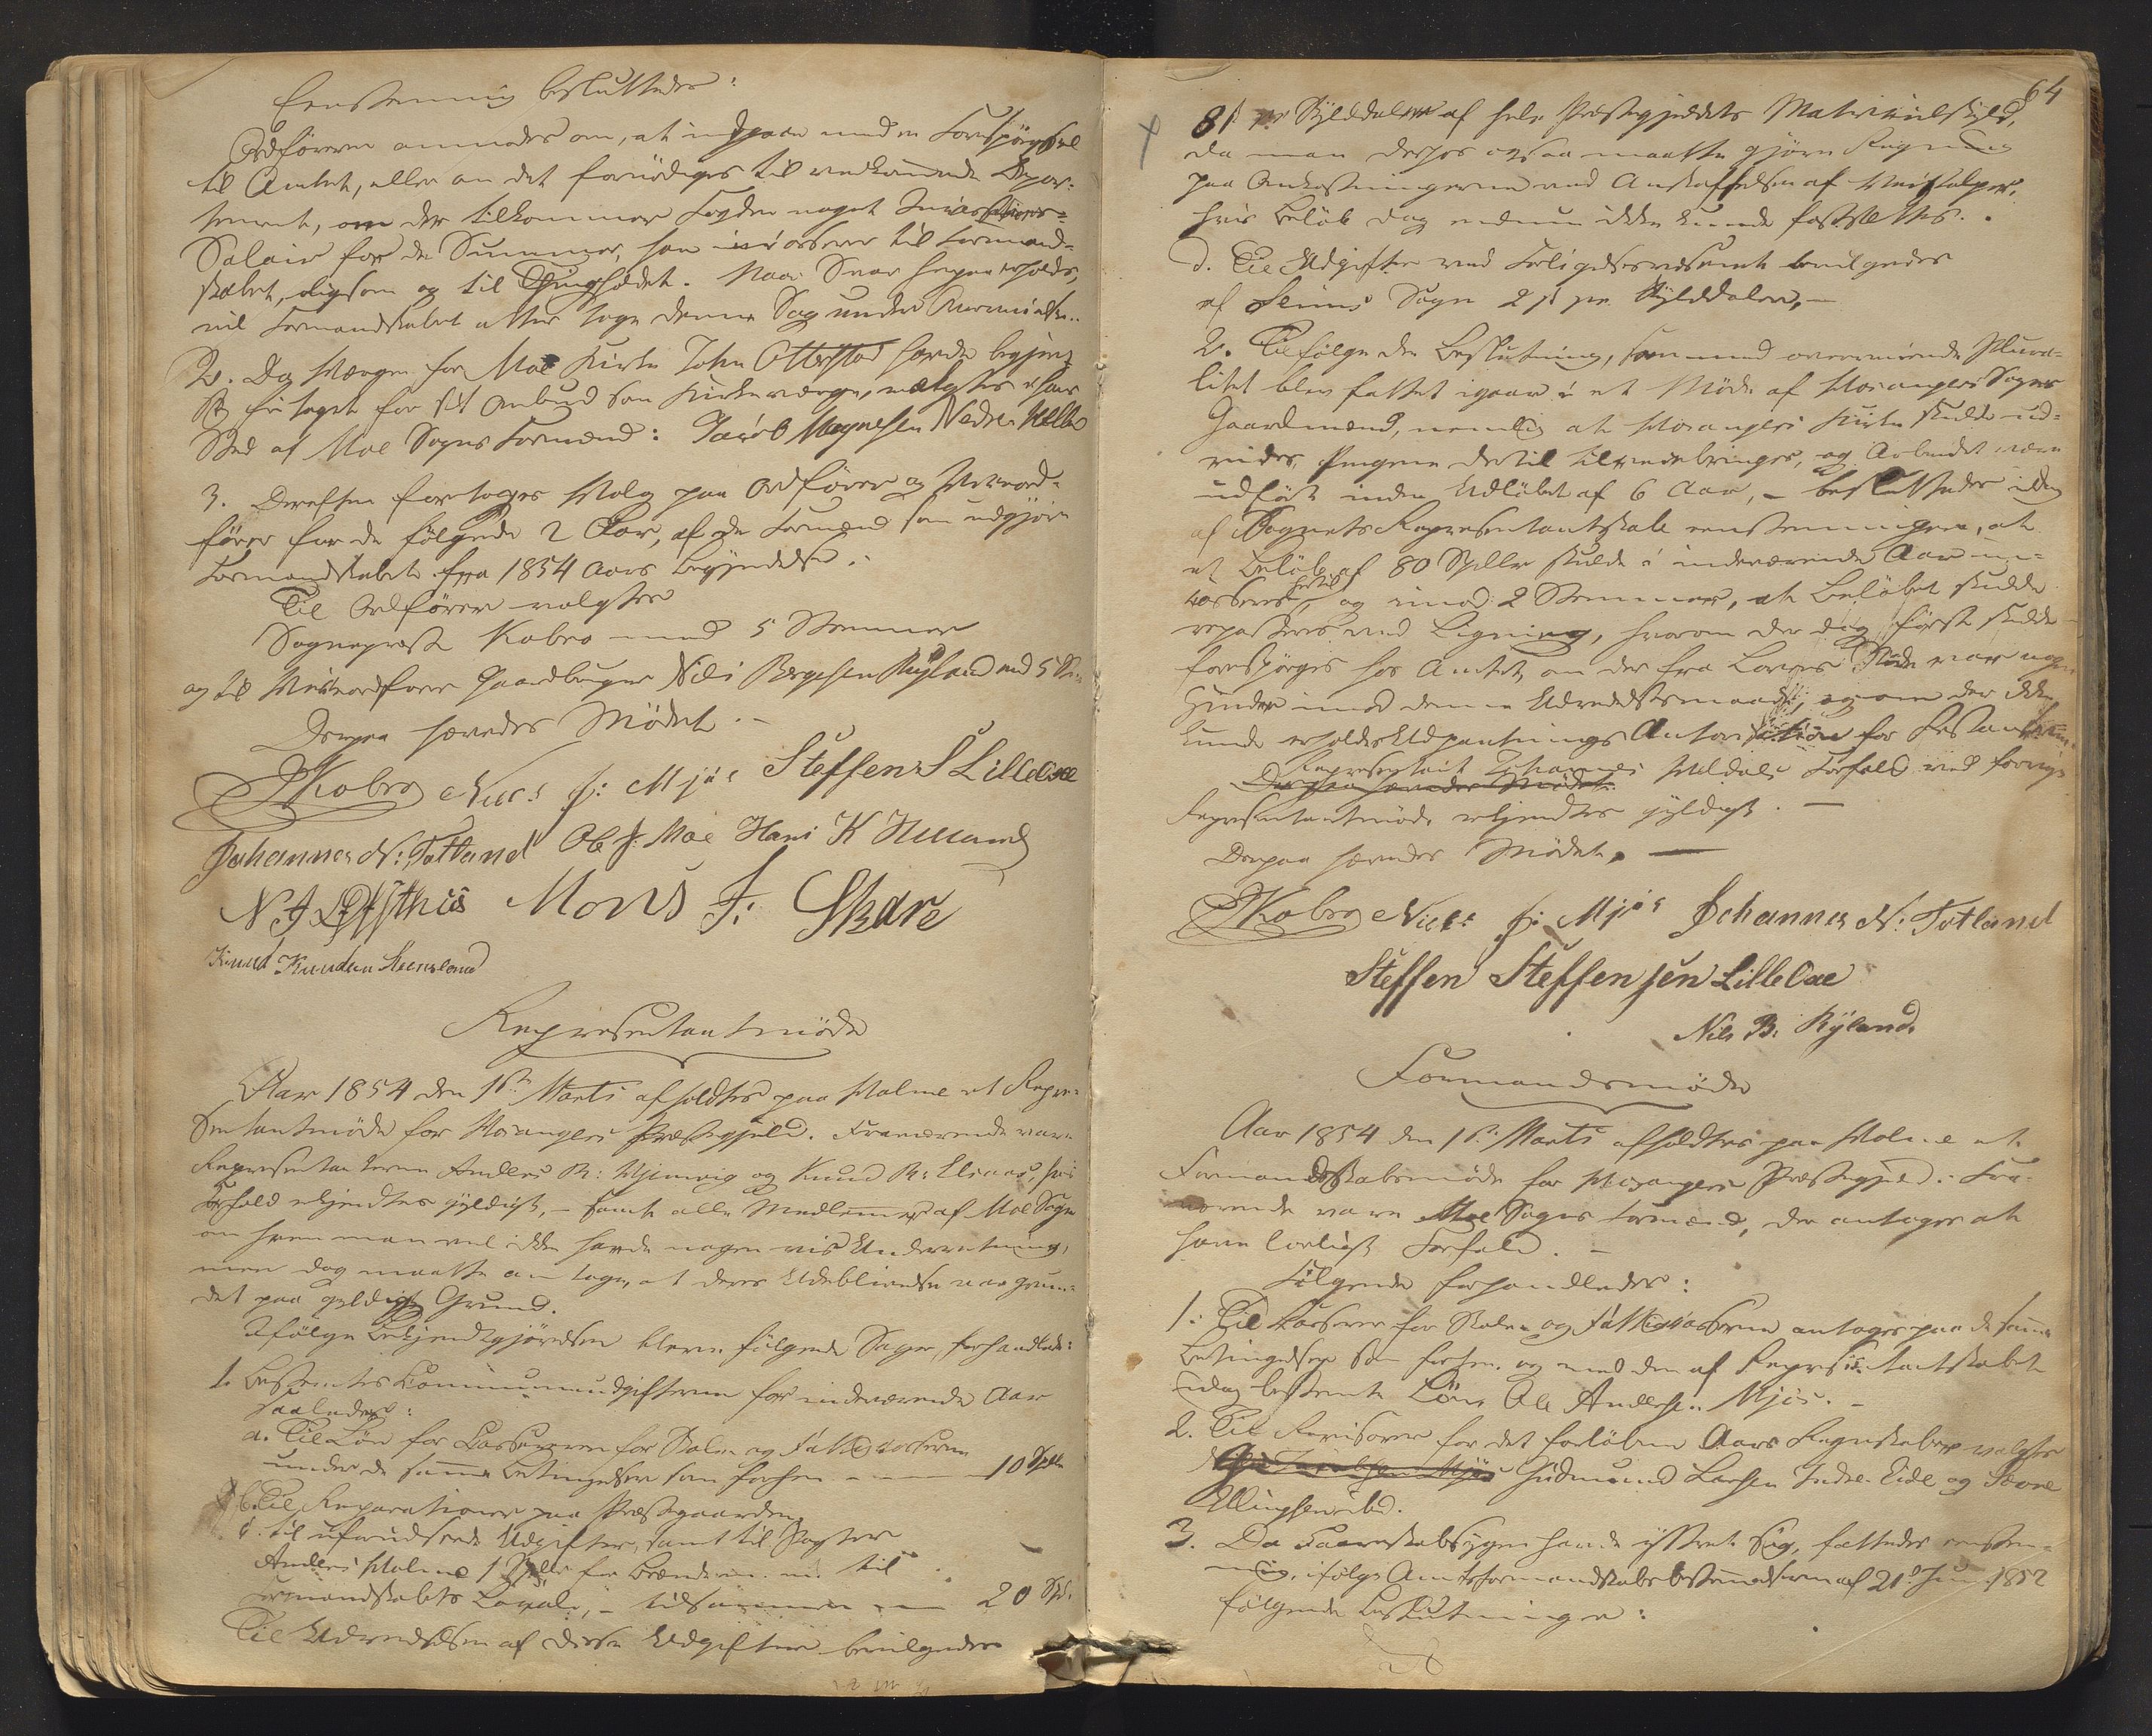 Eenstemmig besluttedes:
Ordføreren anmodes om, at indgaae med en Forespørgsel
til Amtet, eller om det fornødiges til vedkommende Depar-
tement, om der tilkommer Fogden noget Incassations-
Salair for de Summer, han incasserer til Formand-
skabet, ligesom og til Thingholdet. Naar Svar herpaa erholdes,
vil Formandskabet atter tage denne Sag under Overveielse.
2. Da Værgen for Moe Kirke John Otterstad havde begjært
sig fritaget for sit Ombud som Kirkeværge, valgtes i hans
Sted af Moe Sogns Formænd: Jacob Magnesen Nedre Helle
3. Derefter foretoges Valg paa Ordfører og Viceord-
fører for de følgende 2 Aar, af de Formænd som udgjøre
Formandskabet fra 1854 Aars Begyndelse:
Til Ordfører valgtes
Sognepræst Kobro med 5 Stemmer
og til Viceordfører Gaardbruger Nils Bergesen Ryland med 5 St.
Derpaa hævedes Mødet.
Kobro Niels J: Mjøs Steffen S Lilleoae
Johannes N: Totland Ole J: Moe Hans K
N J Mons J: Skare
Knud Knudsen
Representantmøde
Aar 1854 den 1ste Marts afholdtes paa Holme et Repre-
sentantmøde for Hosangers Præstegjeld. Fraværende vare
Representanterne Anders R: Hjelmvig og Knud R: Eknæs, hvis
Forfald erkjendtes gyldigt, - samt alle Medlemmer af Moe Sogn
om hvem man vel ikke havde nogen vis Underretning,
men dog maatte antage, at deres Udeblivelse var grun-
det paa gyldige Grund.
Ifølge Bekjendtgjørelsen bleve følgende Sager forhandlede:
1. Bestemtes Communeudgifterne for indeværende Aar
saaledes:
a. Til Løn for Kassereren for Skole- og Fattigkasserne
under de samme Betingelser som forhen - - 10 Spd.
b. Til Reparationer paa Præstegaarden,
c. til uforudseede Udgifter, samt til
Anders Holme 1 Spd. for Brænde m. m. til
Formandskabets Locale, - tilsammen - 20 Spd.
Til Udredelsen af disse Udgifter bevilgedes
64
8 ß pr Skylddaler af hele Præstegjeldets Matriculskyld,
da man derhos ogsaa maatte gjøre Regning
paa Omkostningerne ved Anskaffelsen af
hvis Beløb dog endnu ikke kunde fastsættes.
d. Til Udgifter ved Forligelsesvæsenet bevilgedes
af Seims Sogn 2 ß pr. Skylddaler, -
2. Tilfølge den Beslutning, som med overveiende Plura-
litet blev fattet igaar i et Møde af Hosangers Sogns
Gaardmænd, nemlig at Hosangers Kirke skulde ud-
vides, Pengene dertil tilveiebringes, og Arbeidet være
udført inden Udløbet af 6 Aar, - besluttedes idag
af Sognets Representantskab eenstemmigen, at
et Beløb af 80 Spdlr skulde i indeværende Aar in-
casseres hertil, og imod 2 Stemmer, at Beløbet skulde
repartieres ved Ligning, hvorom der dog først skulde
forespørges hos Amtet, om der fra Lovens Side var nogen
Hinder imod denne Udredelsesmaade, og om der ikke
kunde erholdes Udpantnings Autorisation for
Representant Johannes Forfald ved forrige
Derpaa hævedes Mødet.
Representantmøde erkjendtes gyldigt. -
Derpaa hævedes Mødet. -
Kobro Niels J: Mjøs Johannes N: Totland
Steffen Steffensen Lilleoae
Nils B: Ryland.
Formandsmøde
Aar 1854 den 1ste Marts afholdtes paa Holme et
Formandskabsmøde for Hosangers Præstegjeld. Fra-
værende vare Moe Sogns Formænd, der antoges at
have lovligt Forfald. -
Følgende forhandledes:
1. Til Kasserer for Skole- og Fattigkasserne antoges paa de samme
Betingelser som forhen og med den af Representantskabet
idag bestemte Løn, Ole Andersen Mjøs. -
2. Til Revisorer for det forløbne Aars Regnskaber valgtes
Gudmund Larsen Indre Eide og
Ellingsen ibid.
3. Da havde yttret sig, fattedes eenstem-
mig, ifølge Amtsformandskabsbestemmelserne af 21de Juni 1852
følgende Beslutninger: